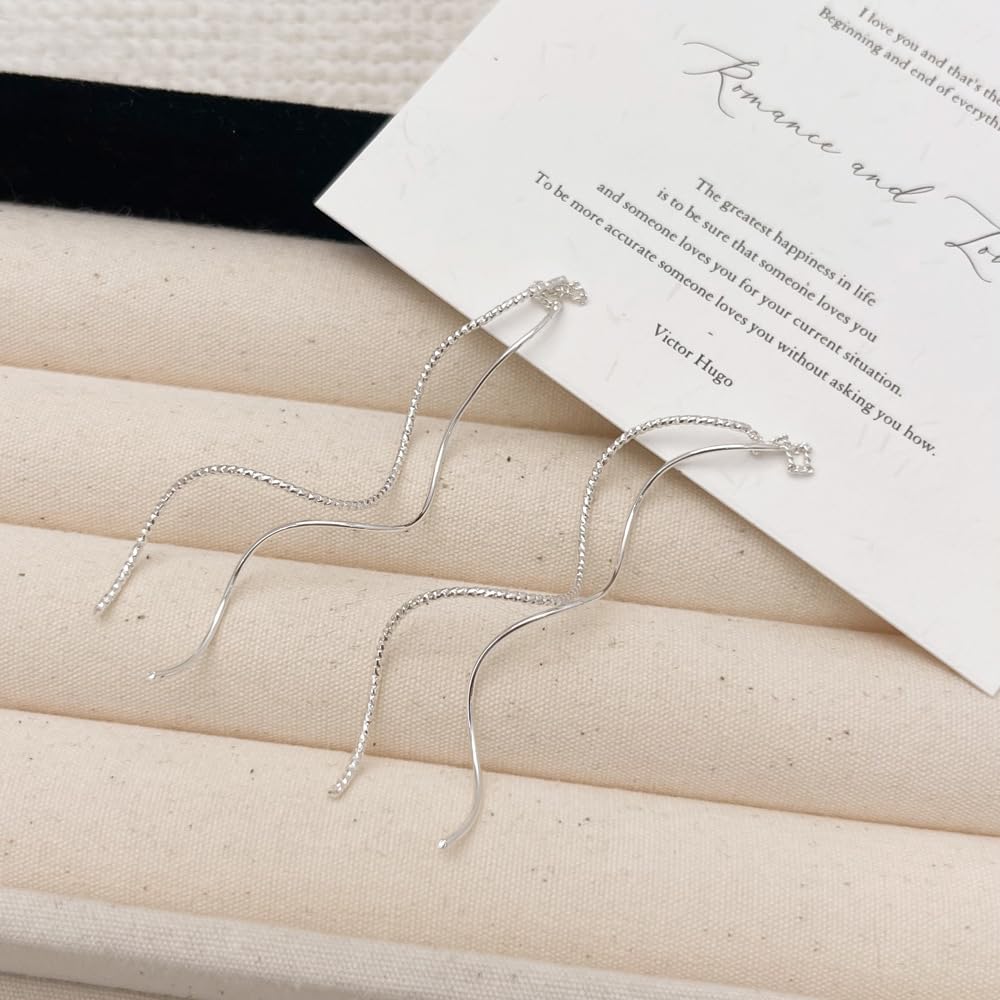 I love you and that's the
Beginning and end of everyth
Romance and Lo
The greatest happiness in life
is to be sure that someone loves you
and someone loves you for your current situation.
To be more accurate someone loves you without asking you how.
-
Victor Hugo